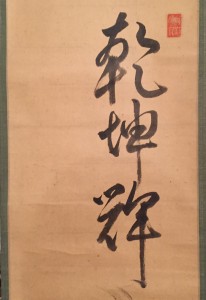 乾坤輝